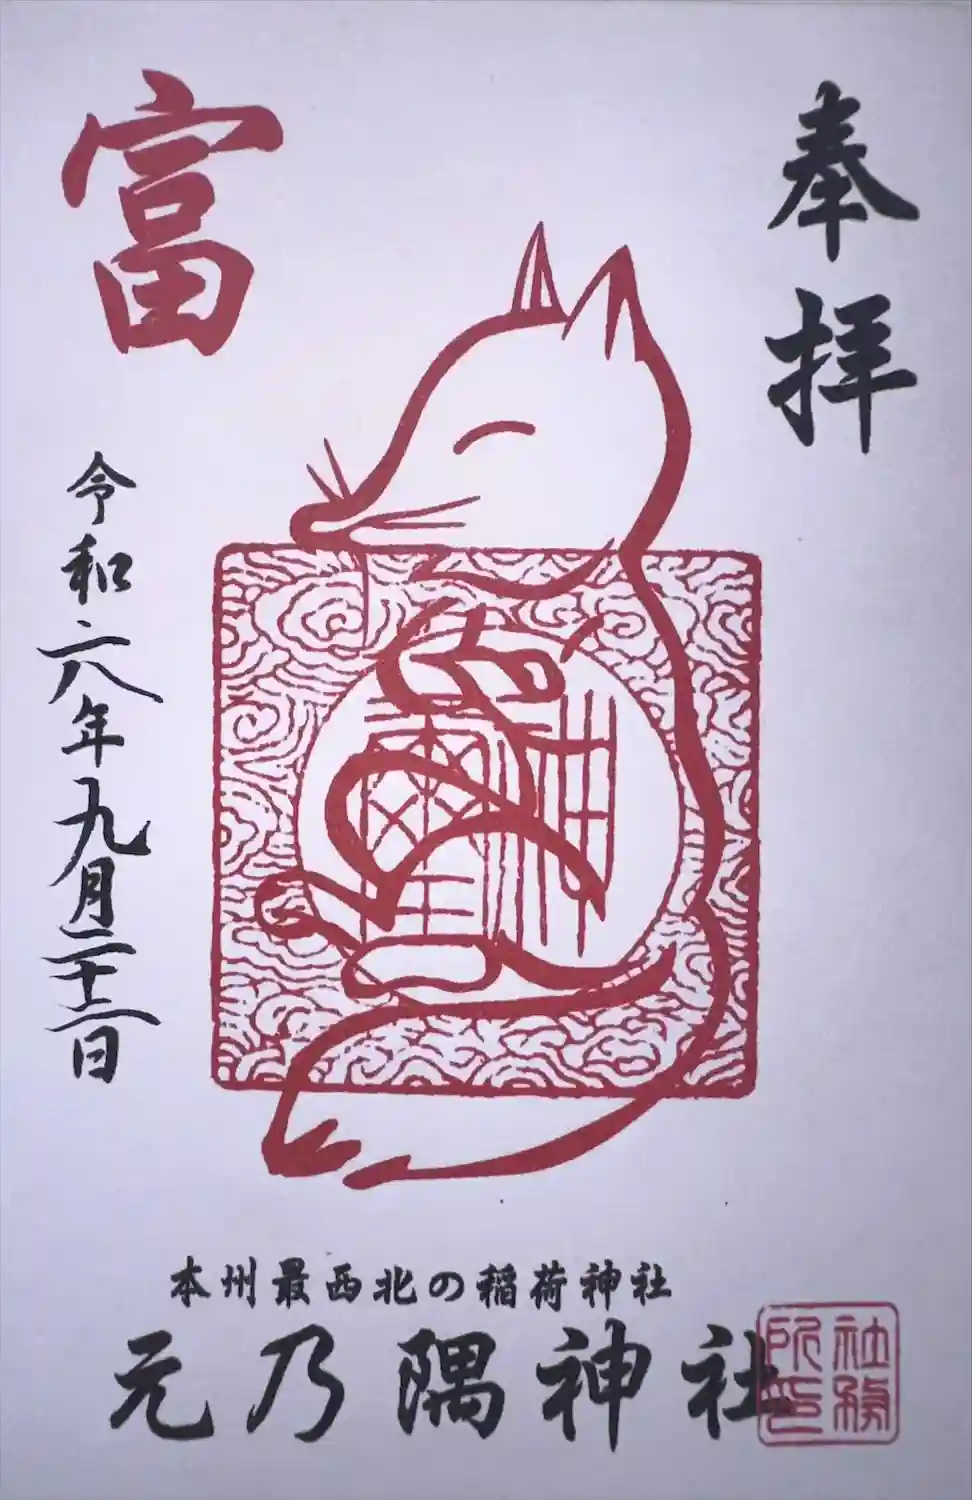 奉拝
富
令和六年九月二十二日
本州最西北の稲荷神社
元乃隅神社
社務所印